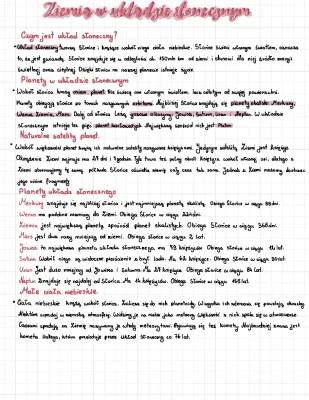 Ziemia w układzie słonecznym
Czym jest układ słoneczny?
• Układ słoneczny tworzą Słońce i krążące wokół niego ciała niebieskie. Słońce świeci własnym światłem, oznacza
to, że jest gwiazdą. Słońce znajduje się w odległości ok. 150 mln km od ziemi i stanowi dla niej źródło energii
świetlnej oraz cieplnej. Dzięki słońcu na naszej planecie istnieje życie.
Planety w układzie słonecznym
• Wokół słońca krąży osiem planet. Nie świecą one własnym światłem, lecz odbitym od swojej powierzchni.
Planety obiegają słońce po torach nazywanych orbitami. Najbliżej Słońca znajdują się planety skaliste: Merkury,
Wenus, Ziemia, Mars. Dalej od słońca Leżą Jowisz, Saturn, Uran i Neptun. W układzie
słonecznym istnieje też pięć planet karłowatych. Największą spośród nich jest Pluton.
Naturalne satelity planet.
• Wokół większości planet krążą ich naturalne satelity nazywane księżycami. Jedynym satelitą Ziemi jest Księżyc.
Okrążenie Ziemi zajmuje mu 27 dni i 8 godzin. Tyle trwa też pełny obrót Księżyca wokół własnej osi, dlatego z
Ziemi obserwujemy tę samą półkulę. Słońce oświetla zawsze tylko
jego widoczne fragmenty.
Planety układu słonecznego
Merkury znajduje się najbliżej słońca i jest najmniejszą planetą skalistą. Obiega Słońce w ciągu 88 dni.
Wenus ma podobne rozmiary do Ziemi. Obiega Słońce w ciągu 225 dni.
Ziemia jest największą planetą spośród planet skalistych. Obiega Słońce w ciągu 365 dni.
Mars jest dwa razy mniejszy od ziemi. Obiega słońce w ciągu 2 lat.
Jowisz to największa planeta układu słonecznego, ma księżyców. Obiega Słońce w ciągu 12 lat.
Saturn Wokół niego są widoczne pierścienie z brył lodu. Ma księżyce. Obiega Słońce w ciągu lat.
Uran jest dużo mniejszy od Jowisza i Saturna. Ma 27 księżyców. Obiega słońce w ciągu 84 lat.
Neptun Znajduje się najdalej od Słońca. Ma 14 księżyców. Obiega Słońce w ciągu 165 lat.
Małe ciała niebieskie
• Ciała niebieskie krążą wokół słońca. Zalicza się do nich planetoidy. W wyniku ich zderzenia się powstają okruchy.
Niektóre wpadają w ziemską atmosferę. Widzimy je na niebie jako meteory. Większość z nich spala się w atmosferze.
Czasami spadają na Ziemię nazywamy je wtedy meteorytami. Pojawiają się też komety. Najbardziej znana jest
kometa Halleya, która przelatuje przez układ Słoneczny co 76 lat.